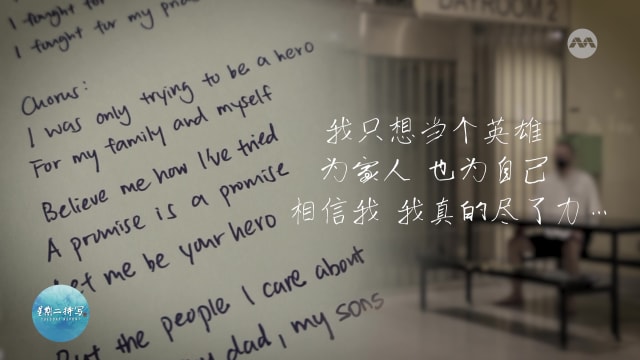 I fought for
I fought for my
Chorus:
I was only trying to be a hero
For my family and myself
Believe me how I've tried
A promise is a promise
Let me be your hero
But the people I care about
my dad, my sons
DAYROOM 2
我只想当个英雄
为家人 也为自己
相信我 我真的尽了力…
星期二特写
TUESDAY REPORT